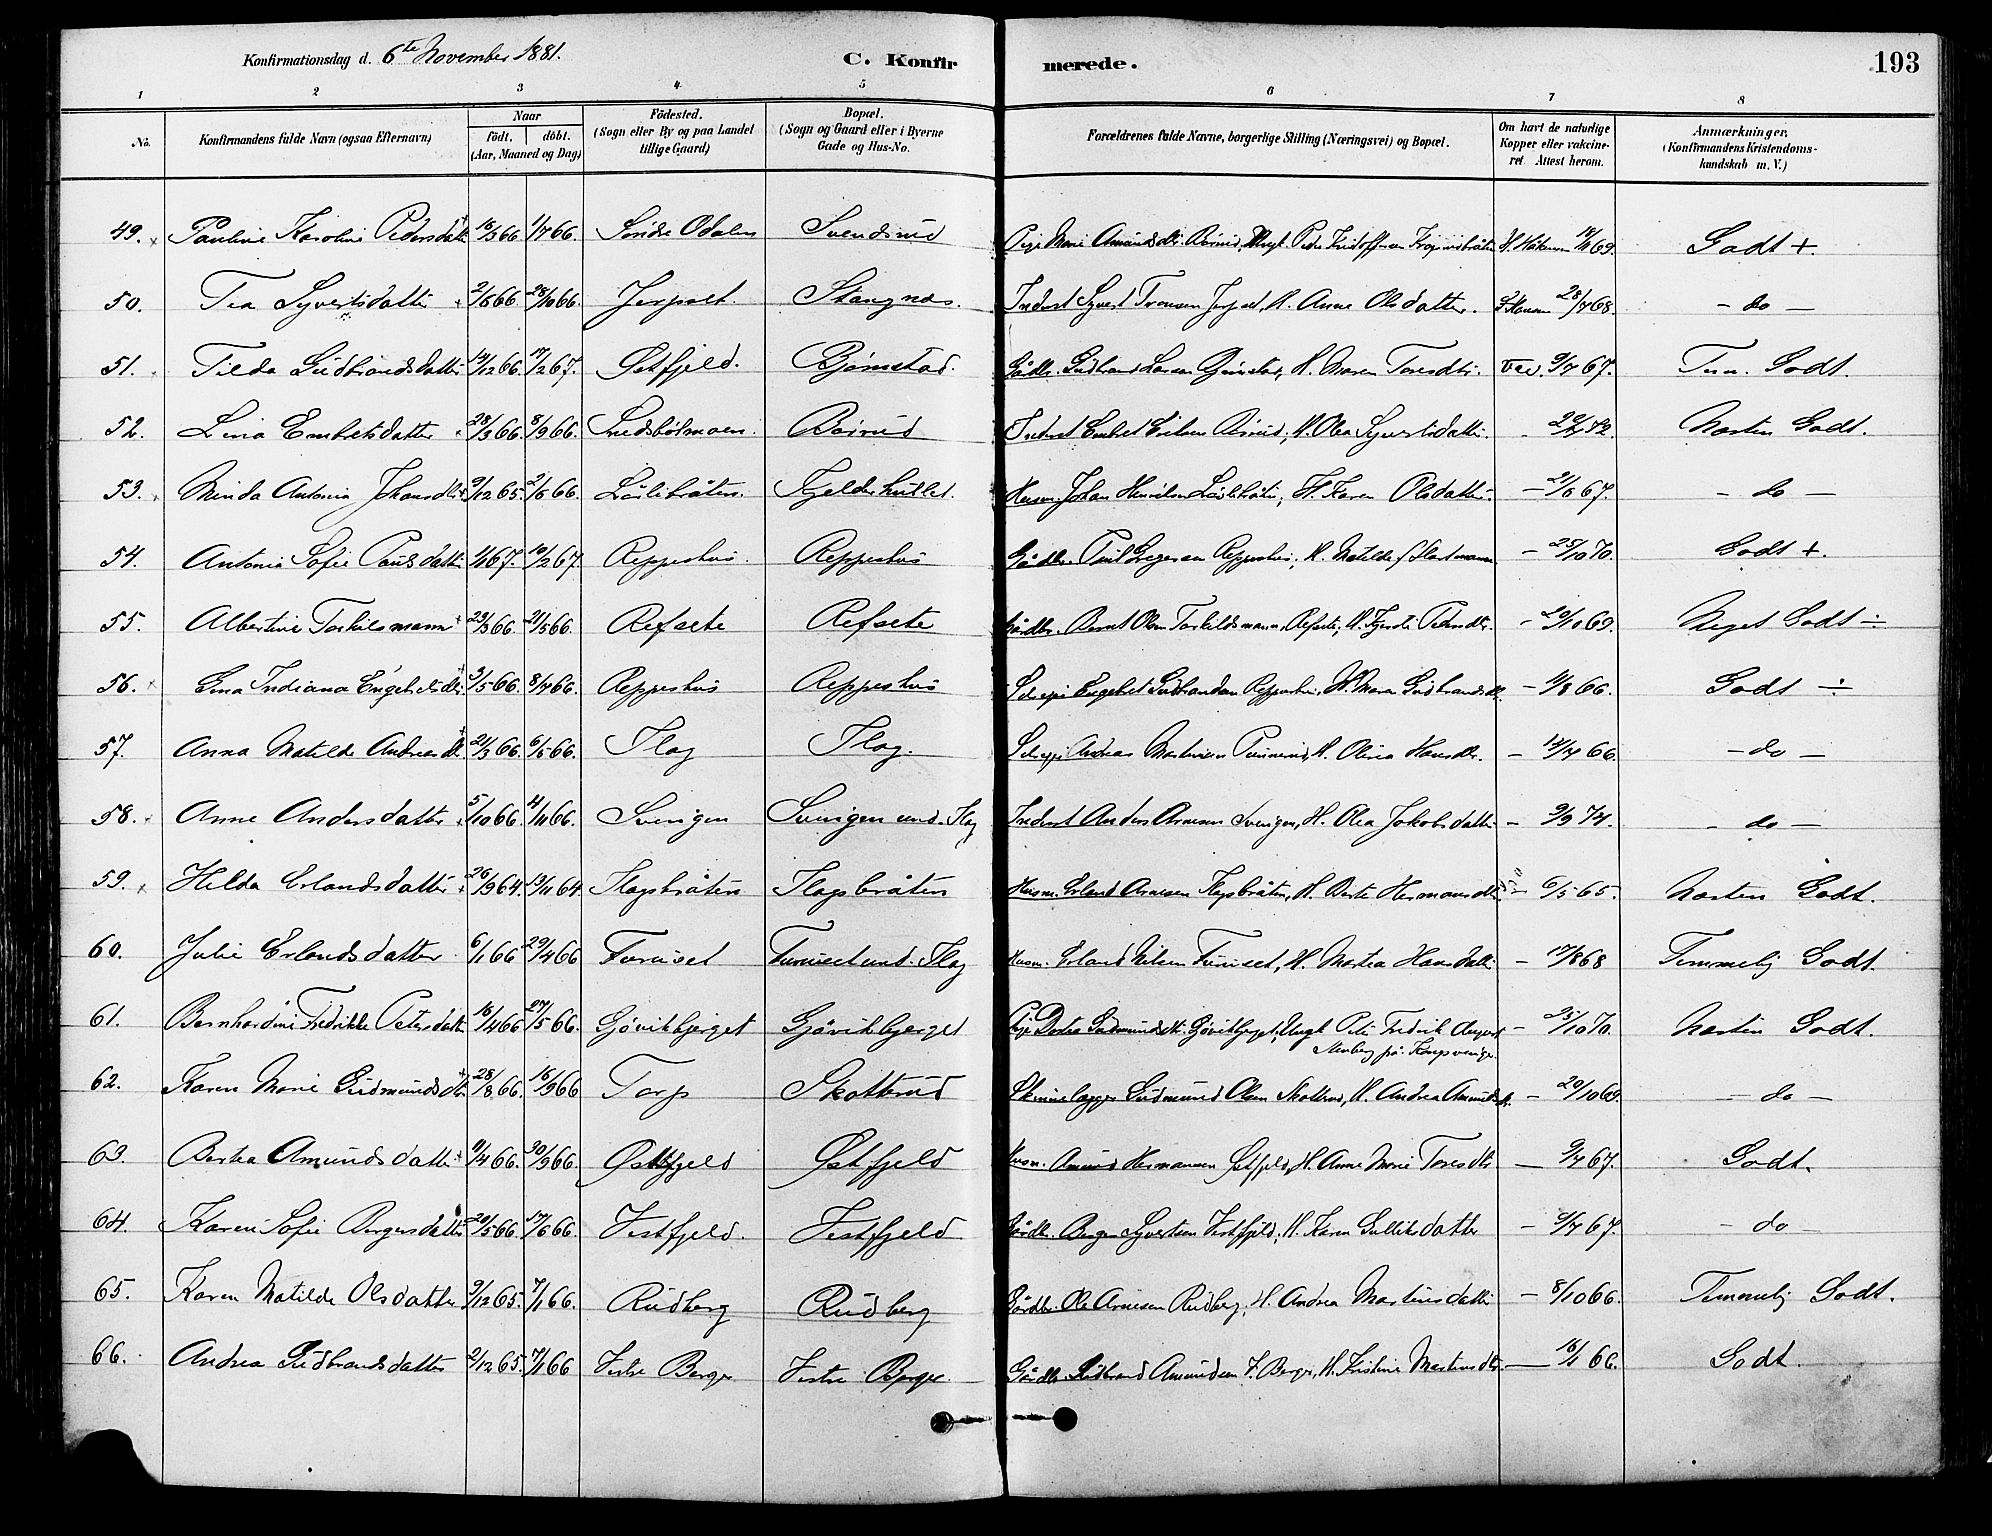 Konfirmationsdag d. 6te November 1881. C. Konfirmerede. 193
1 2 3 4 5 6 7 8
No. Konfirmandens fulde Navn (ogsaa Efternavn) Naar födt. döbt. (Aar, Maaned og Dag) Födested. (Sogn eller By og paa Landet tillige Gaard) Bopæl. (Sogn og Gaard eller i Byerne Gade og Hus-No. Forældrenes fulde Navne, borgerlige Stilling (Næringsvei) og Bopæl. Om havt de naturlige Kopper eller vakcineret. Attest herom. Anmærkninger. (Konfirmandens Kristendomskundskab m. V.)
49. Pauline Karoline Pedersdatter 18/3 66 1/7 66. Söndre Odalen Svendsrud Pige Marie Amundsdtr. Ungk. Peder 69. Godt +.
50. Tea Syvertsdatter 2/6 66. 28/10 66. Jerpset. Stangnæs. Inderst Syvert Jerpset, H. Anne Olsdatter. 28/7 68. – do –
51. Tilda Gudbrandsdatter 19/12 66. 17/2 67. Østfjeld. Björnstad. Gårdbr. Gudbrand Larsen Björnstad, H. Maren Toresdtr. vac. 9/7 67. Tem. Godt.
52. Lina Embretsdatter 28/3 66. 8/9 66. Börud Inderst Embret Börud, H. Olea Syvertsdatter. Næsten Godt.
53. Minda Antonia Johansdtr. 9/12 65. 2/5 66. Lislibråten. Husm. Johan Henriksen, H. Karen Olsdatter – 21/6 67. – do –
54. Antonie Sofie Paulsdatter 1/1 67. 10/2 67. Reppeshus. Reppeshus Gårdbr. Reppeshus, H. Matilde Hartmann – 25/10 70. Godt +.
55. Albertine Torkilsmann 23/3 66. 21/5 66. Refsete Refsete Gårdbr. Bernt Olsen Torkildsmann, Refsete, – 20/10 69. Meget Godt ÷
56. Gina Indiana Engebretsdtr. 3/5 66. 8/7 66. Reppeshus Reppeshus Selveier Engebret Gudbrandsen Reppeshus, H. Maren Gudbrandsdtr. – 4/8 66. Godt ÷
57. Anna Matilde Andreasdtr. 21/3 66. 6/5 66. Flag Flag. Selveier Andreas Martinsen, H. Olina Hansdtr. – 14/7 66. – do –
58. Anne Andersdatter 5/10 66. 4/11 66. Svingen Svingen und. Flag Inderst Anders Arnesen Svingen, H. Olea Jakobsdatter – 9/9 74. – do –
59. Helda Erlandsdatter 26/9 64. 13/11 64 Flagsbråten Flagsbråten Husm. Erland Arnesen Flagsbråten, H. Berte Hermansdtr. – 6/5 65. Næsten Godt.
60. Julie Erlandsdatter 6/1 66 29/4 66 Furuset Furuset und. Flag Husm. Erland Nilsen Furuset, H. Martea Hansdatter – 17/8 68 Temmelig Godt.
61. Bernhardine Fredrikke Petersdatter 16/4 66 27/5 66. Gjövikbjerget Gjövikbjerget Pige Dortea Gudmundsdtr. Gjövikbjerget, Ungk. Peter Fredrik August – 10 70. Næsten Godt.
Stenberg på Kongsvinger.
62. Karen Marie Gudmundsdtr. 28/8 66. 16/9 66 Torp Skotterud Gudmund Olsen Skotterud, H. Andrea Amundsdtr. – 20/10 69. – do –
63. Bertea Amundsdatter 9/4 66. 30/9 66. Østfjeld Østfjeld Husm. Amund Hermansen Østfjeld, H. Anne Marie Toresdtr – 9/7 67. Godt.
64. Karen Sofie Bergersdatter 20/5 66. 17/6 66. Vestfjeld. Vestfjeld Gårdbr. Berger Syvertsen Vestfjeld, H. Karen Gulliksdatter – 9/7 67. – do –
65. Karen Matilde Olsdatter 9/12 65. 7/1 66. Rudberg Rudberg Gårdbr. Ole Arnesen Rudberg, H. Andrea Martinsdatter – 8/10 66. Temmelig Godt.
66. Andrea Gudbrandsdatter 2/12 65. 7/1 66 Vestre Berger Vestre Berger Gårdbr. Gudbrand Amundsen V. Berger, H. Kristine Martinsdtr. – 16/1 66. Godt.